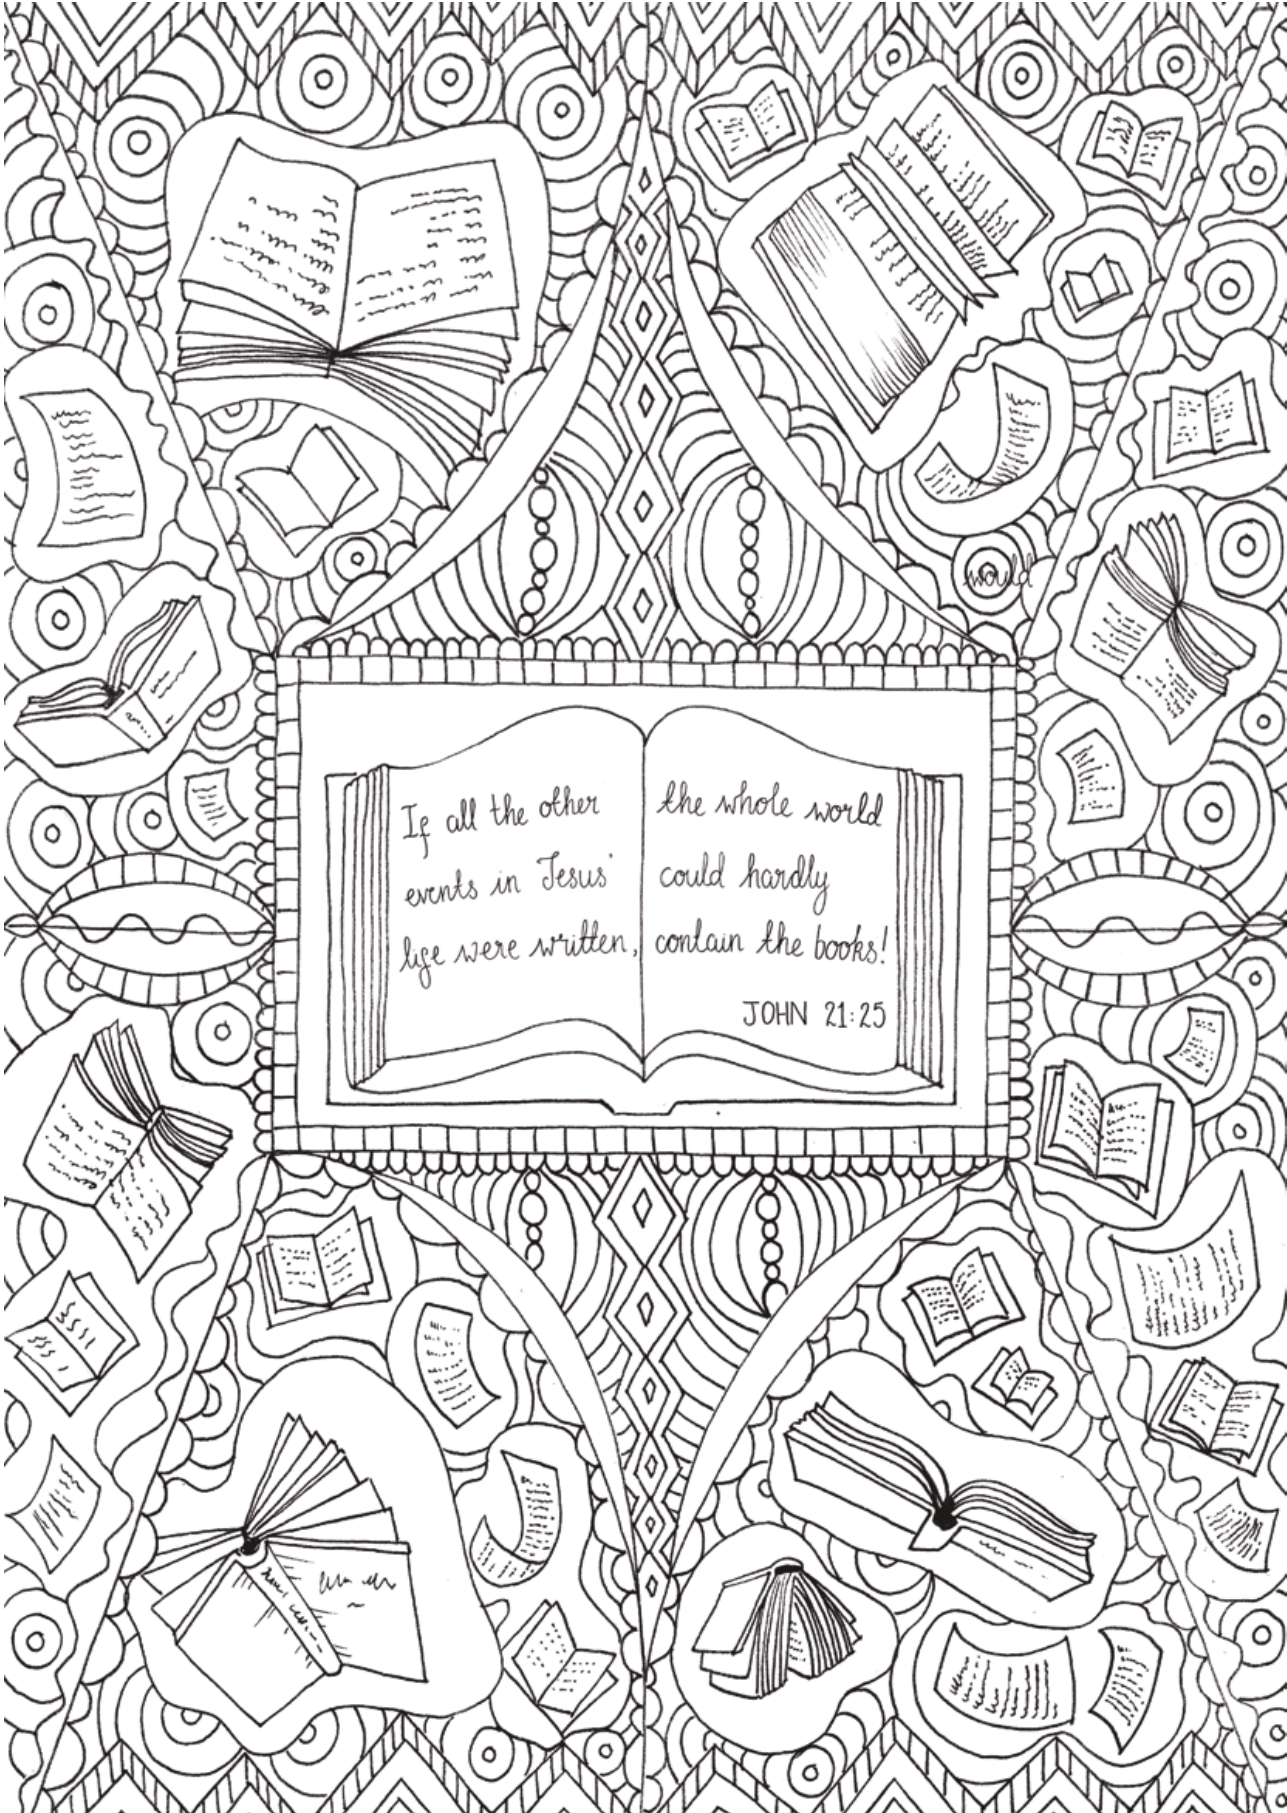 would
If all the other
events in Jesus'
life were written,
the whole world
could hardly
contain the books!
JOHN 21:25